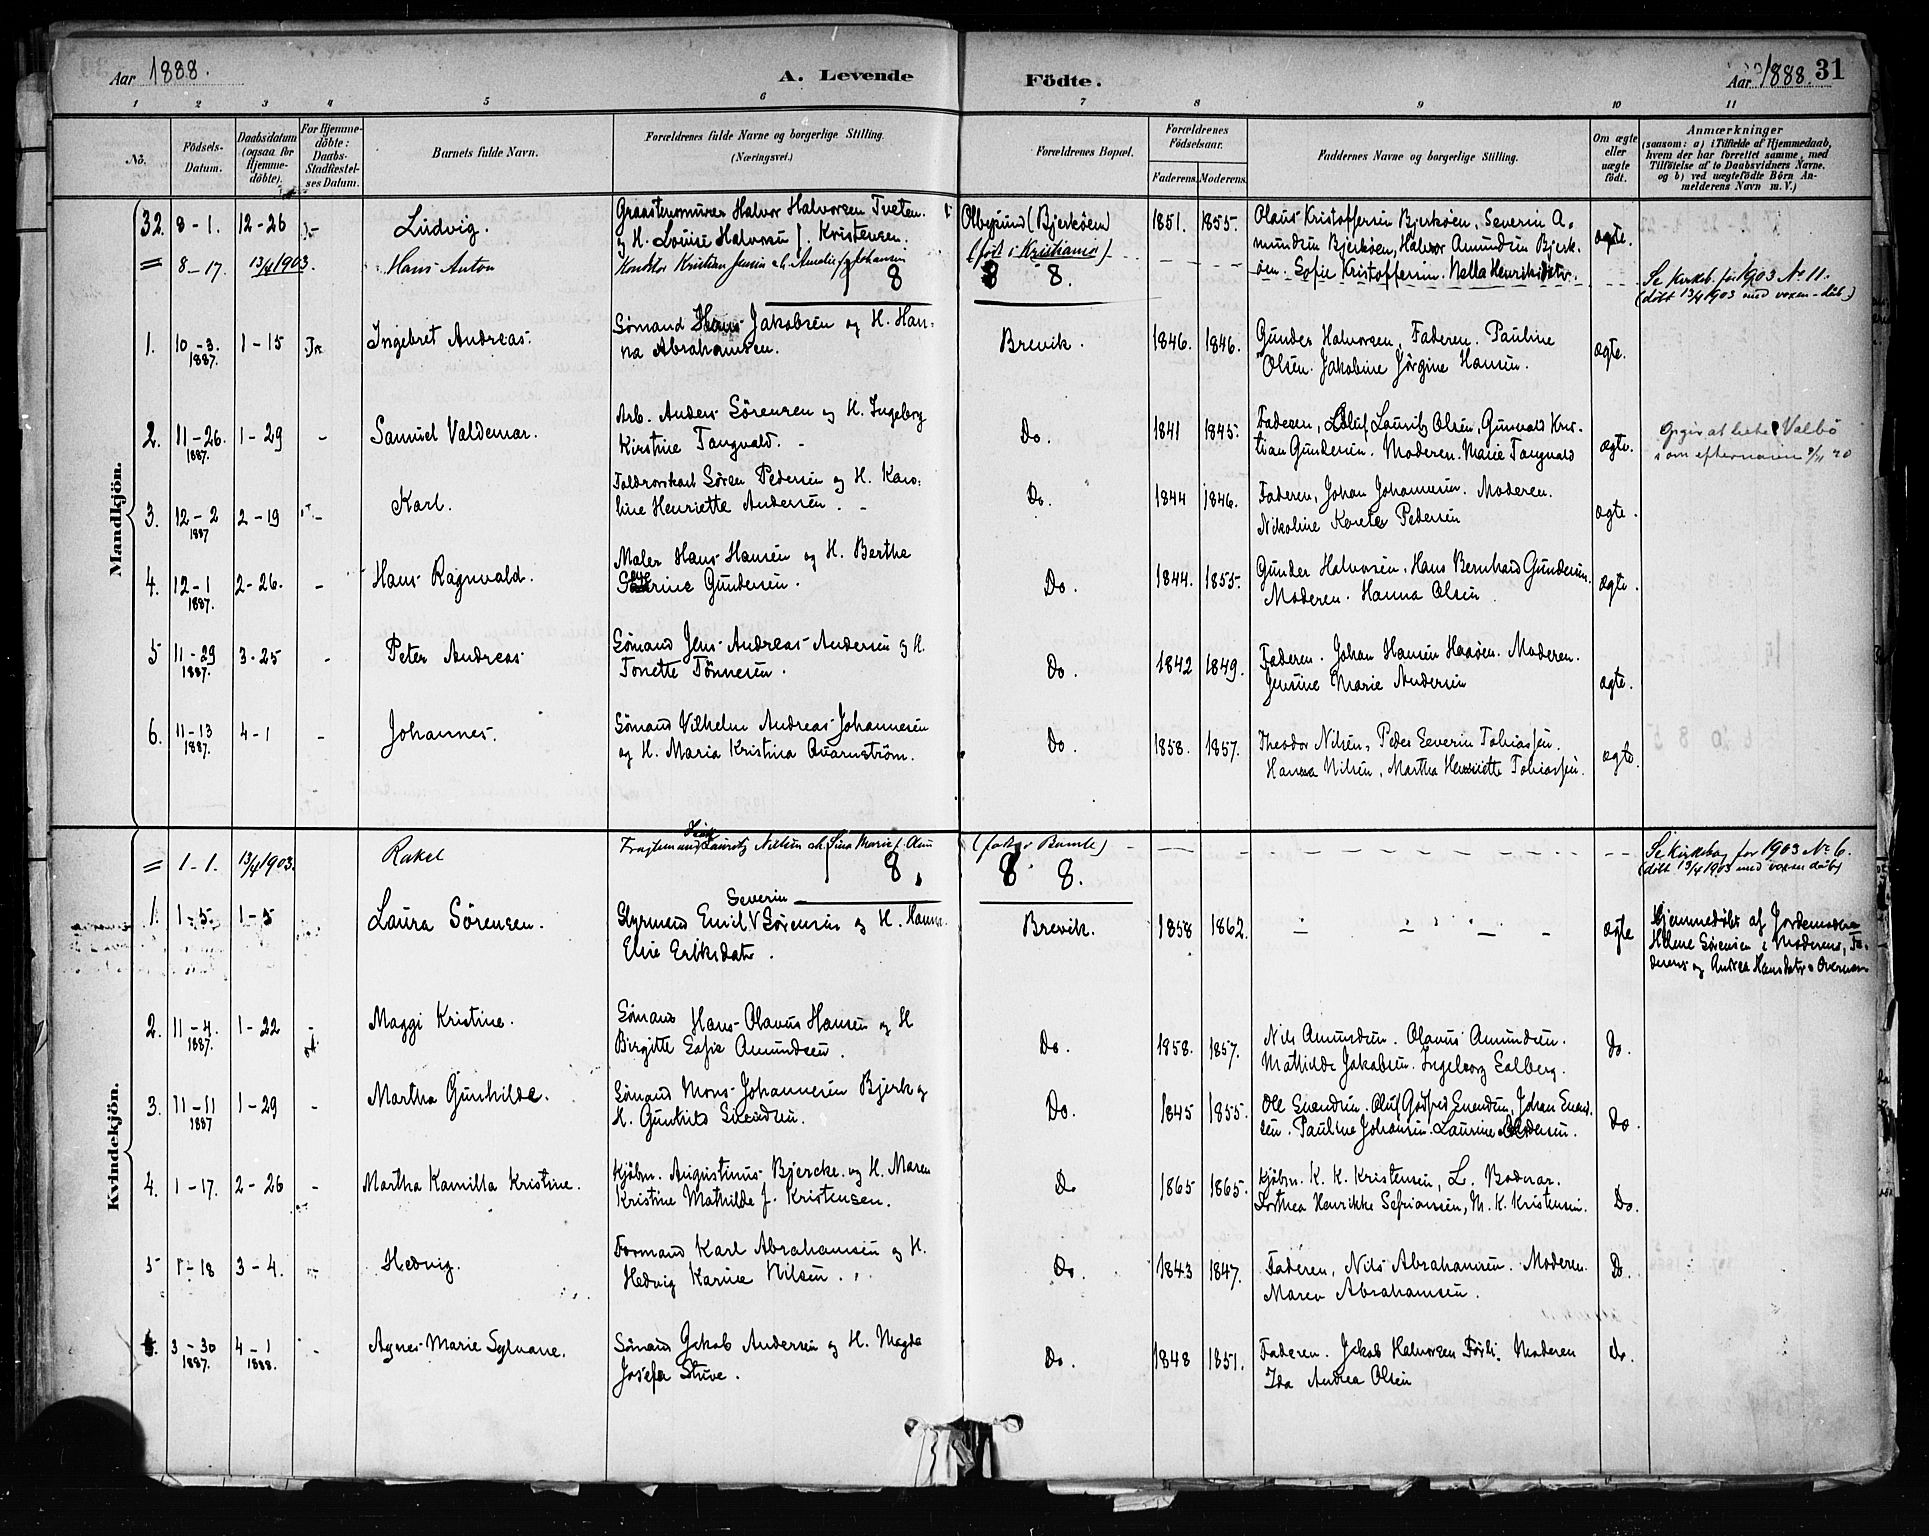 Aar 1888. A. Levende Födte. Aar 1888. 31
1 2 3 4 5 6 7 8 9 10 11
No.
Födsels-
Datum.
Daabsdatum
(ogsaa for
Hjemme-
döbte).
For Hjemme-
döbte:
Daabs-
Stadfæstel-
ses Datum.
Barnets fulde Navn.
Forældrenes fulde Navne og borgerlige Stilling.
(Næringsvei.)
Forældrenes Bopæl.
Forældrenes
Födselsaar.
Faderens. Moderens.
Faddernes Navne og borgerlige Stilling.
Om ægte
eller
uægte
födt.
Anmærkninger
(saasom: a) i Tilfælde af Hjemmedaab,
hvem der har forrettet samme, med
Tilföielse af to Daabsvidners Navne,
og b) ved uægtefödte Börn An-
melderens Navn m. V.)
Mandkjön.
32. 8-1. 12-26 Ludvig.
Graastensmurer Halvor Halvorsen Tveten.
og H. Louise Halvorsen f. Kristensen.
(Bjerkøen) 1851. 1855.
Olaus Kristoffersen Bjerkøen, Severin A-
mundsen Bjerkøen, Halvor Amundsen Bjerk-
øen. Sofie Kristoffersen. Nella Henriksdatr.
ægte.
= 8-17. 13/4 1903. Hans Anton
Kristian Jensen Amalie Johansen
(født i Kristiania)
Se Kirkeb. for 1903 No 11.
(døbt 13/4 1903 med voxen-dåb)
8 8 8.
1. 10-3. 1887. 1-15 Ingebret Andreas.
Sømand Hans Jakobsen og H. Han-
na Abrahamsen.
Brevik. 1846. 1846.
Gunder Halvorsen, Faderen. Pauline
Olsen. Jakobine Jörgine Hansen.
ægte.
2. 11-26. 1887. 1-29 - Samuel Valdemar.
Arb. Anders Sörensen og H. Ingeborg
Kirstine Tangvald.
Do. 1841 1845.
Faderen, Oluf Lauritz Olsen, Gunvald Kris-
tian Gundersen. Moderen. Marie Tangvald
ægte.
Opgir at hete Valbö
som efternavn
3. 12-2 1887 2-19 - Karl.
Sören Pedersen og H. Karo-
line Henriette Andersen.
Do. 1844 1846.
Faderen, Johan Johannesen. Moderen.
Nikoline Pedersen
ægte.
4. 12-1 1887. 2-26. - Hans Ragnvald.
Maler Hans Hansen og H. Berthe
Gundersen.
Do. 1844. 1855.
Gunder Halvorsen. Hans Bernhard Gundersen.
Moderen. Hanna Olsen
ægte.
5 11-29 1887. 3-25 - Peter Andreas
Sömand Jens Andreas Andersen og H.
Tonette Tönnesen.
Do. 1842 1849.
Faderen. Johan Hansen Haaöen. Moderen.
Jensine Marie Andersen
ægte.
6. 11-13 1887. 4-1 - Johannes.
Sömand Vilhelm Andreas Johannesen
og H. Maria Kristina Quarnström.
Do. 1858. 1857.
Theodor Nilsen, Peder Severin Tobiassen.
Hanna Nilsen, Martha Henriette Tobiassen.
ægte.
Kvindekjön.
= 1-1. 13/4 1903. Rakel
Lauritz Nielsen
Se Kirkebog for 1903 No 6.
(døbt 13/4 1903 med voxen dåb)
8. 8 8.
1. 1-5. 1-5 Laura Sörensen.
Severin
Styrmand Emil V Sörensen og H. Hanna
Elise Eriksdatr.
Brevik. 1858 1862.
ægte
Hjemmedöbt af Jordemoder
Helene Sörensen i Moderens, Fa-
derens og Andrea Hansdatrs Overvær
2. 11-4. 1887. 1-22 - Maggi Kristine.
Sömand Hans Olavus Hansen og H
Birgitte Sofie Amundsen.
Do. 1858. 1857.
Nils Amundsen. Olavus Amundsen.
Mathilde Jakobsen. Ingeborg Solberg.
Do.
3. 11-11 1887 1-29 - Martha Gunhilde.
Sömand Mons Johannesen Bjerk og
H. Gunhild Svendsen.
Do. 1845 1855.
Ole Svendsen. Oluf Godfred Svendsen, Johan Svend-
sen. Pauline Johansen. Laurine Pedersen.
Do.
4. 1-17. 2-26 - Martha Kamilla Kristine.
Kjöbm. Augustinus Bjercke og H. Maren
Kristine Mathilde f. Kristensen.
Do 1865 1865.
Kjöbm. K. K. Kristensen, L. Bodvar.
Dorthea Henrikke Sefriansen, M. K. Kristensen.
Do.
5 1-18 3-4. Hedvig.
Formand Karl Abrahamsen og H.
Hedvig Karine Nilsen.
Do. 1843 1847.
Faderen, Nils Abrahamsen. Moderen.
Maren Abrahamsen.
Do.
6. 3-30 1887. 4-1 1888. - Agnes Marie Sylvane.
Sömand Jakob Andersen og H. Magda
Josefa Stuve.
Do. 1848 1851.
Faderen. Jakob Halvorsen. Moderen
Ida Andrea Olsen
do.